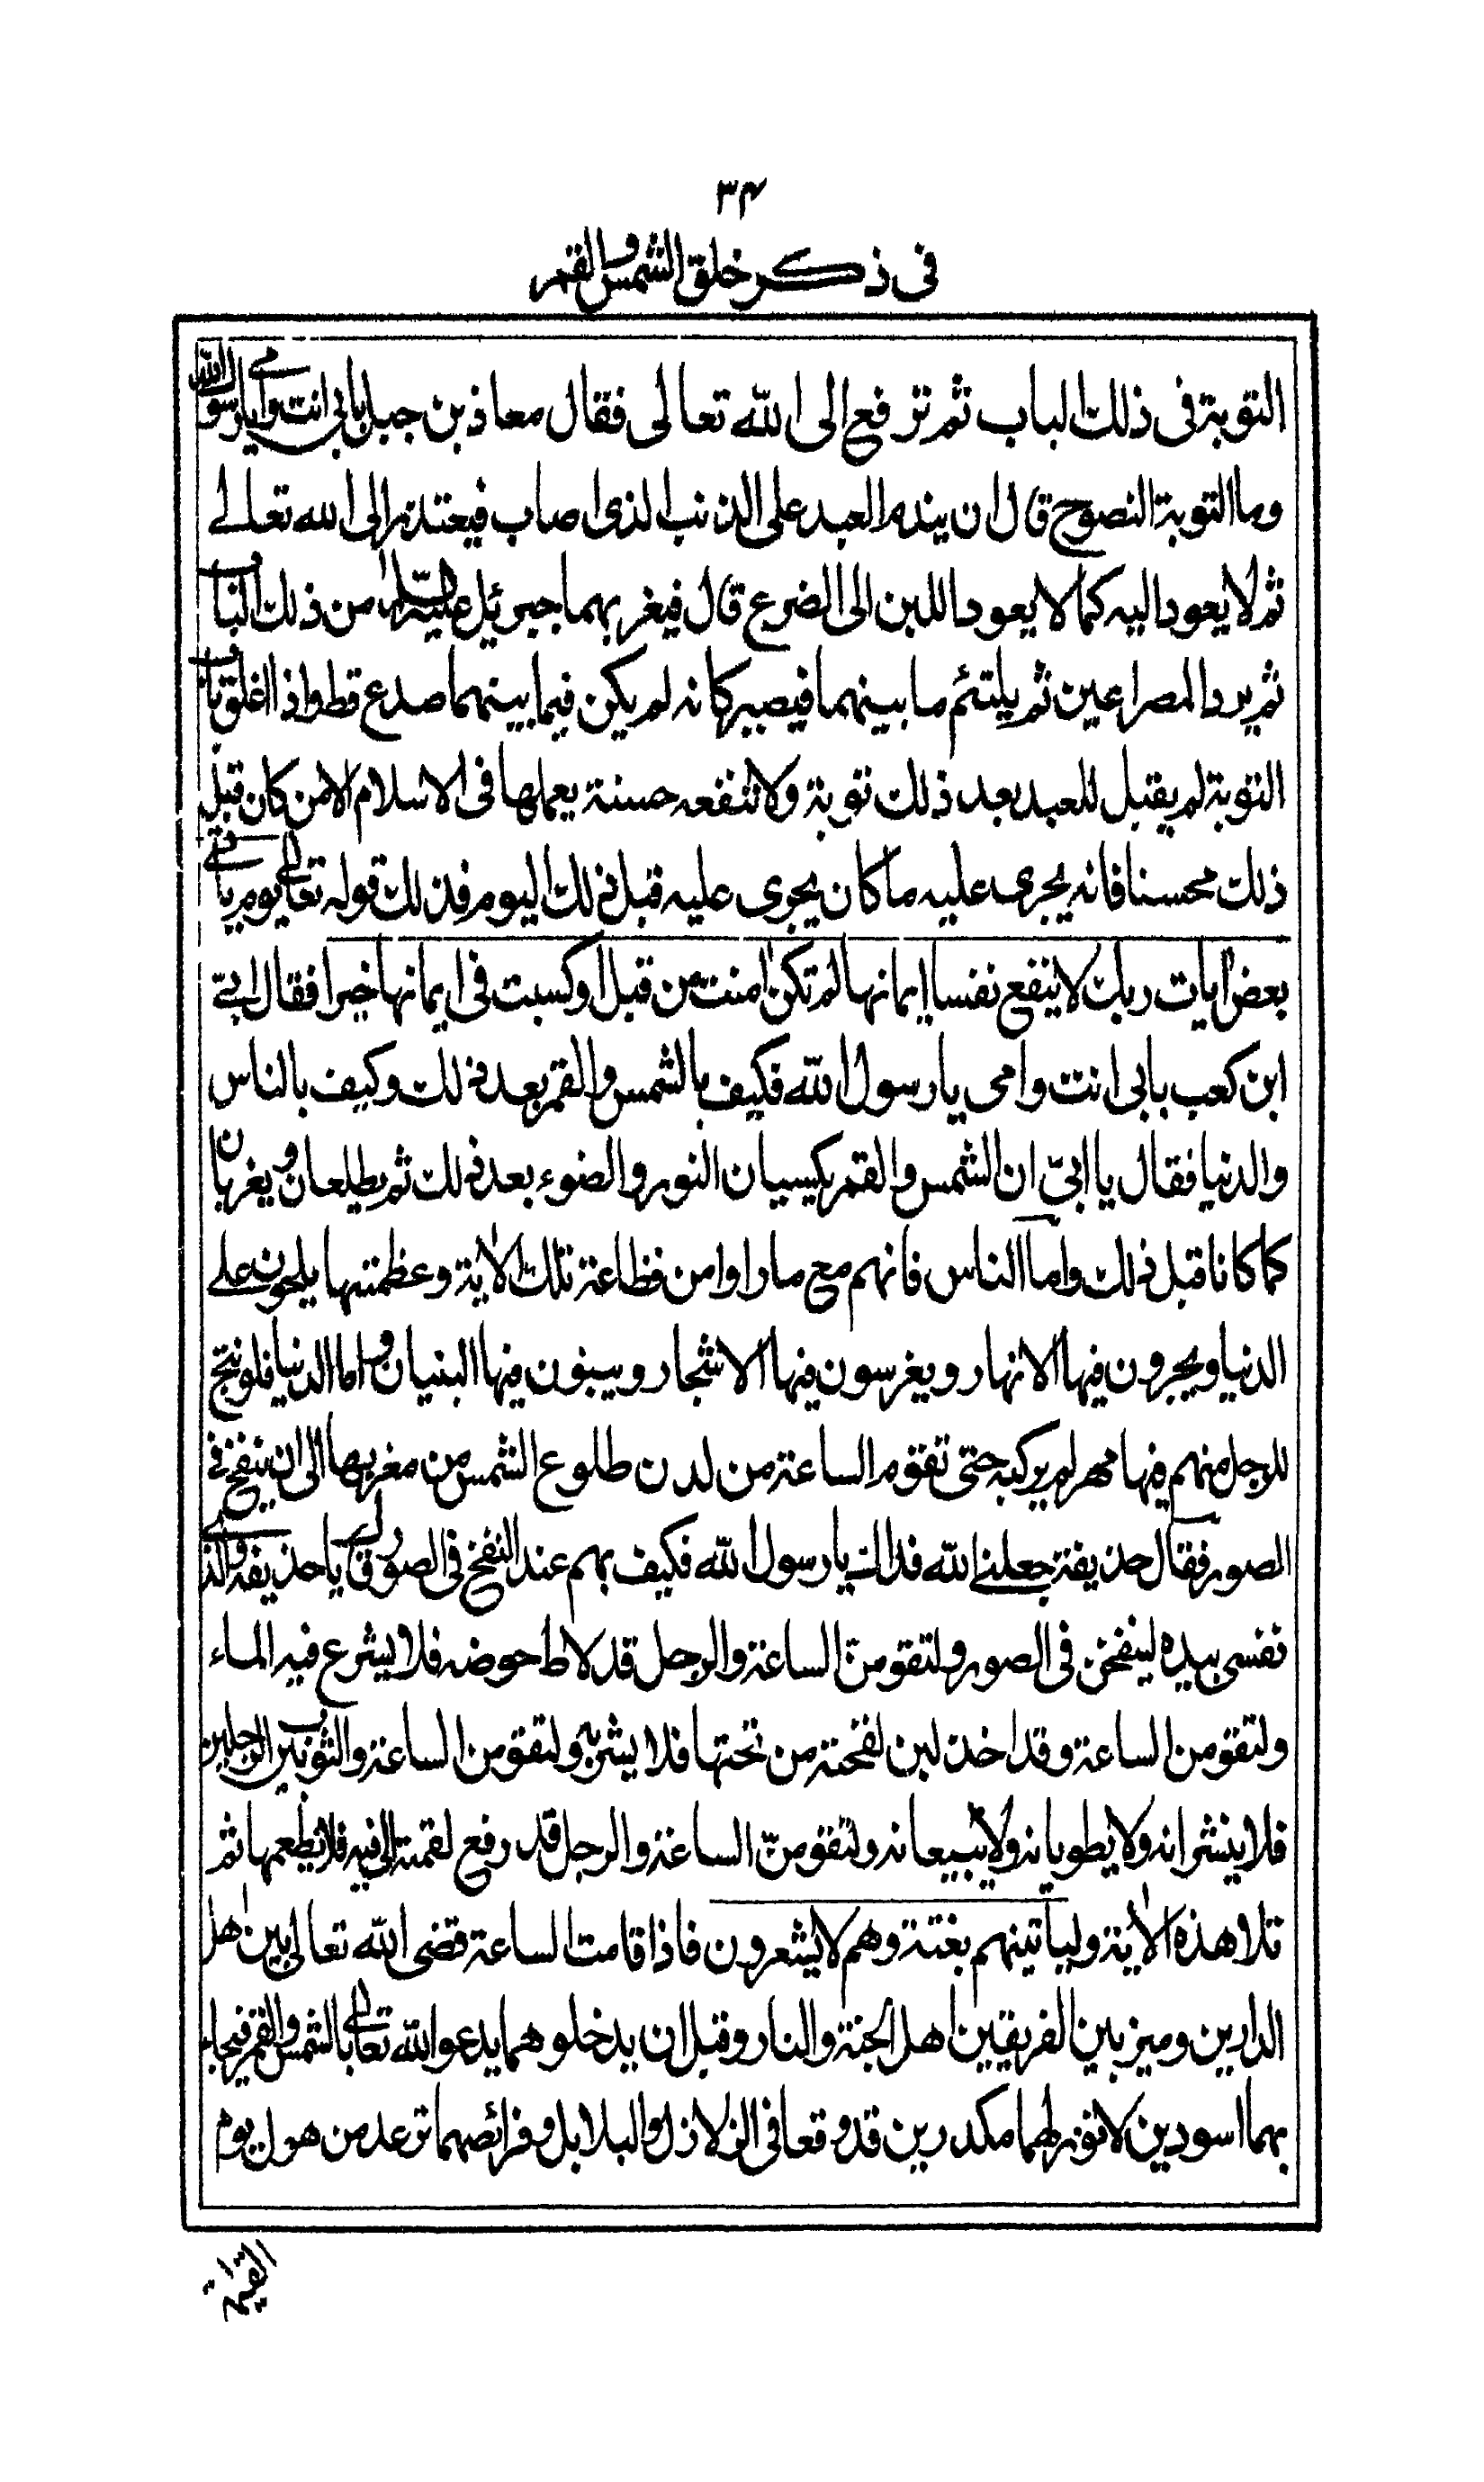 ٣٤
فى ذكر خلق الشمس والقمر
التوبة فى ذلك الباب ثم ترفع الى الله تعالى فقال معاذ بن جبل بابى انت وامى يا رسول الله
وما التوبة النصوح قال ان يندم العبد على الذنب الذى اصاب فيعتذر الى الله تعالى
ثم لا يعود اليه كما لا يعود اللبن الى الضرع قال فيغربهما جبرئيل عليه السلام من ذلك الباب
ثم يرد المصراعين ثم يلتئم ما بينهما فيصير كانه لم يكن فيما بينهما صدع قط واذا اغلق باب
التوبة لم يقبل للعبد بعد ذلك توبة ولا تنفعه حسنة يعملها فى الاسلام الا من كان قبل
ذلك محسنا فانه يجرى عليه ما كان يجرى عليه قبل ذلك اليوم فذلك قوله تعالى يوم ياتى
بعض ايات ربك لا ينفع نفسا ايمانها لم تكن امنت من قبل او كسبت فى ايمانها خيرا فقال ابى
ابن كعب بابى انت وامى يا رسول الله فكيف بالشمس والقمر بعد ذلك وكيف بالناس
والدنيا فقال يا ابىّ ان الشمس والقمر يكسيان النور والضوء بعد ذلك ثم يطلعان ويغربان
كما كانا قبل ذلك واما الناس فانهم مع ما راوا من فظاعة تلك الاية وعظمتها يلحون على
الدنيا ويجرون فيها الانهار ويغرسون فيها الاشجار ويبنون فيها البنيان واما الدنيا فلو نتج
للرجل منهم فيها مهر لم يركبه حتى تقوم الساعة من لدن طلوع الشمس من مغربها الى ان ينفخ فى
الصور فقال حذيفة جعلنى الله فداك يا رسول الله فكيف بهم عند النفخ فى الصور قال يا حذيفة والذى
نفسى بيده لينفخن فى الصور ولتقومن الساعة والرجل قد لاط حوضه فلا يشرع فيه الماء
ولتقومن الساعة وقد اخذ لبن لقحته من تحتها فلا يشربه ولتقومن الساعة والثوب بين الرجلين
فلا ينشرانه ولا يطويانه ولا يبيعانه ولتقومنّ الساعة والرجل قد رفع لقمته الى فيه فلا يطعمها ثم
تلا هذه الاية ولياتينهم بغتة وهم لا يشعرون فاذا قامت الساعة قضى الله تعالى بين اهل
الدارين وميز بين الفريقين اهل الجنة والنار وقبل ان يدخلوهما يدعو الله تعالى بالشمس والقمر فيجاء
بهما اسودين لا نور لهما مكدرين قد وقعا فى الزلازل والبلابل وفرائصهما ترعد من هول يوم
القيمة